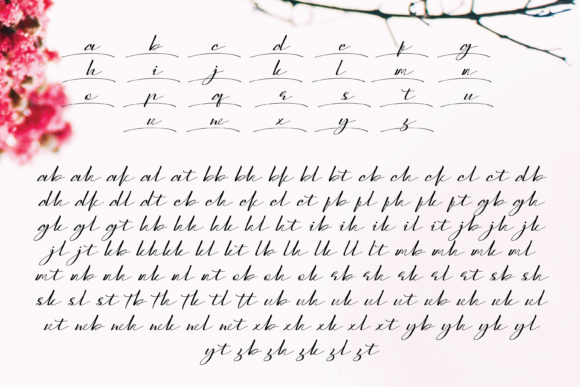 a b c d e f g
h i j k l m n
o p q r s t u
v w x y z
ab ah ak al at bb bh bk bl bt cb ch ck cl ct db
dh dk dl dt eb eh ek el et fb fl fh fk ft gb gh
gk gl gt hb hh hk hl ht ib ih ik il it jb jh jk
jl jt kb khkk kl kt lb lh lk ll lt mb mh mk ml
mt nb nh nk nl nt ob oh ok rb rh rk rl rt sb sh
sk sl st tb th tk tl tt ub uh uk ul ut vb vh vk vl
vt wb wh wk wl wt xb xh xk xl xt yb yh yk yl
yt zb zh zk zl zt